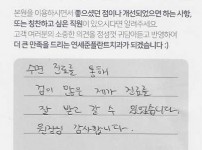 본원을 이용하시면서 좋으셨던 점이나 개선되었으면 하는 사항,
또는 칭찬하고 싶은 직원이 있으시다면 알려주세요.
고객 여러분의 소중한 의견을 정성껏 귀담아듣고 반영하여
더 큰 만족을 드리는 연세준플란트치과가 되겠습니다 :)
수면 진료를 통해
겁이 많은 제가 진료를
잘 받고 갈 수 있었습니다.
원장님 감사합니다.